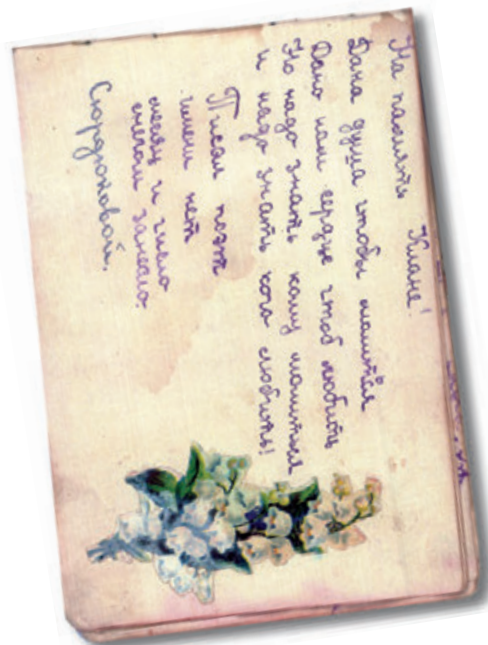 На память Клаве!
Дана душа чтобы молится
Дано нам сердце чтоб любить
Но надо знать кому молиться
и надо знать кого любить!
Писал поэт
имени нет
месяц и число
снегом занесло.
Сюрдюковой.